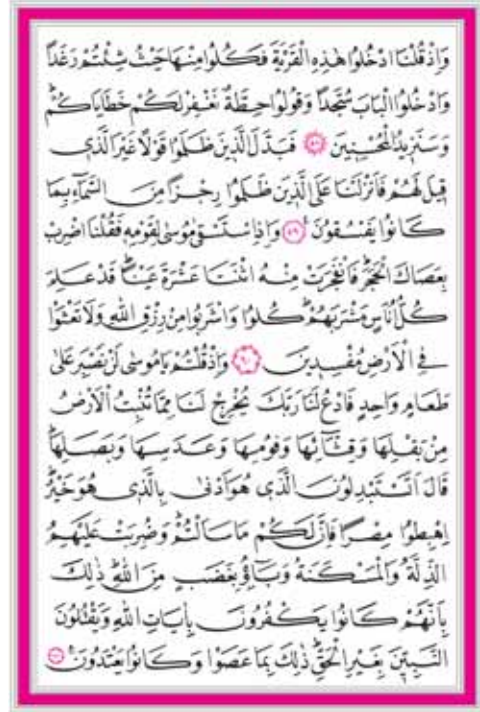 وَاِذْ قُلْنَا ادْخُلُوا هٰذِهِ الْقَرْيَةَ فَكُلُوا مِنْهَا حَيْثُ شِئْتُمْ رَغَدًا
وَادْخُلُوا الْبَابَ سُجَّدًا وَقُولُوا حِطَّةٌ نَغْفِرْ لَكُمْ خَطَايَاكُمْ
وَسَنَزِيدُ الْمُحْسِنِينَ ٥٨ فَبَدَّلَ الَّذِينَ ظَلَمُوا قَوْلًا غَيْرَ الَّذِى
قِيلَ لَهُمْ فَاَنْزَلْنَا عَلَى الَّذِينَ ظَلَمُوا رِجْزًا مِنَ السَّمَاءِ بِمَا
كَانُوا يَفْسُقُونَ ٥٩ وَاِذِ اسْتَسْقٰى مُوسٰى لِقَوْمِهِ فَقُلْنَا اضْرِبْ
بِعَصَاكَ الْحَجَرَ فَانْفَجَرَتْ مِنْهُ اثْنَتَا عَشْرَةَ عَيْنًا قَدْ عَلِمَ
كُلُّ اُنَاسٍ مَشْرَبَهُمْ كُلُوا وَاشْرَبُوا مِنْ رِزْقِ اللّٰهِ وَلَا تَعْثَوْا
فِى الْاَرْضِ مُفْسِدِينَ ٦٠ وَاِذْ قُلْتُمْ يَا مُوسٰى لَنْ نَصْبِرَ عَلٰى
طَعَامٍ وَاحِدٍ فَادْعُ لَنَا رَبَّكَ يُخْرِجْ لَنَا مِمَّا تُنْبِتُ الْاَرْضُ
مِنْ بَقْلِهَا وَقِثَّائِهَا وَفُومِهَا وَعَدَسِهَا وَبَصَلِهَا
قَالَ اَتَسْتَبْدِلُونَ الَّذِى هُوَ اَدْنٰى بِالَّذِى هُوَ خَيْرٌ
اِهْبِطُوا مِصْرًا فَاِنَّ لَكُمْ مَا سَاَلْتُمْ وَضُرِبَتْ عَلَيْهِمُ
الذِّلَّةُ وَالْمَسْكَنَةُ وَبَاؤُ بِغَضَبٍ مِنَ اللّٰهِ ذٰلِكَ
بِاَنَّهُمْ كَانُوا يَكْفُرُونَ بِاٰيَاتِ اللّٰهِ وَيَقْتُلُونَ
النَّبِيّنَ بِغَيْرِ الْحَقِّ ذٰلِكَ بِمَا عَصَوْا وَكَانُوا يَعْتَدُونَ ٦١